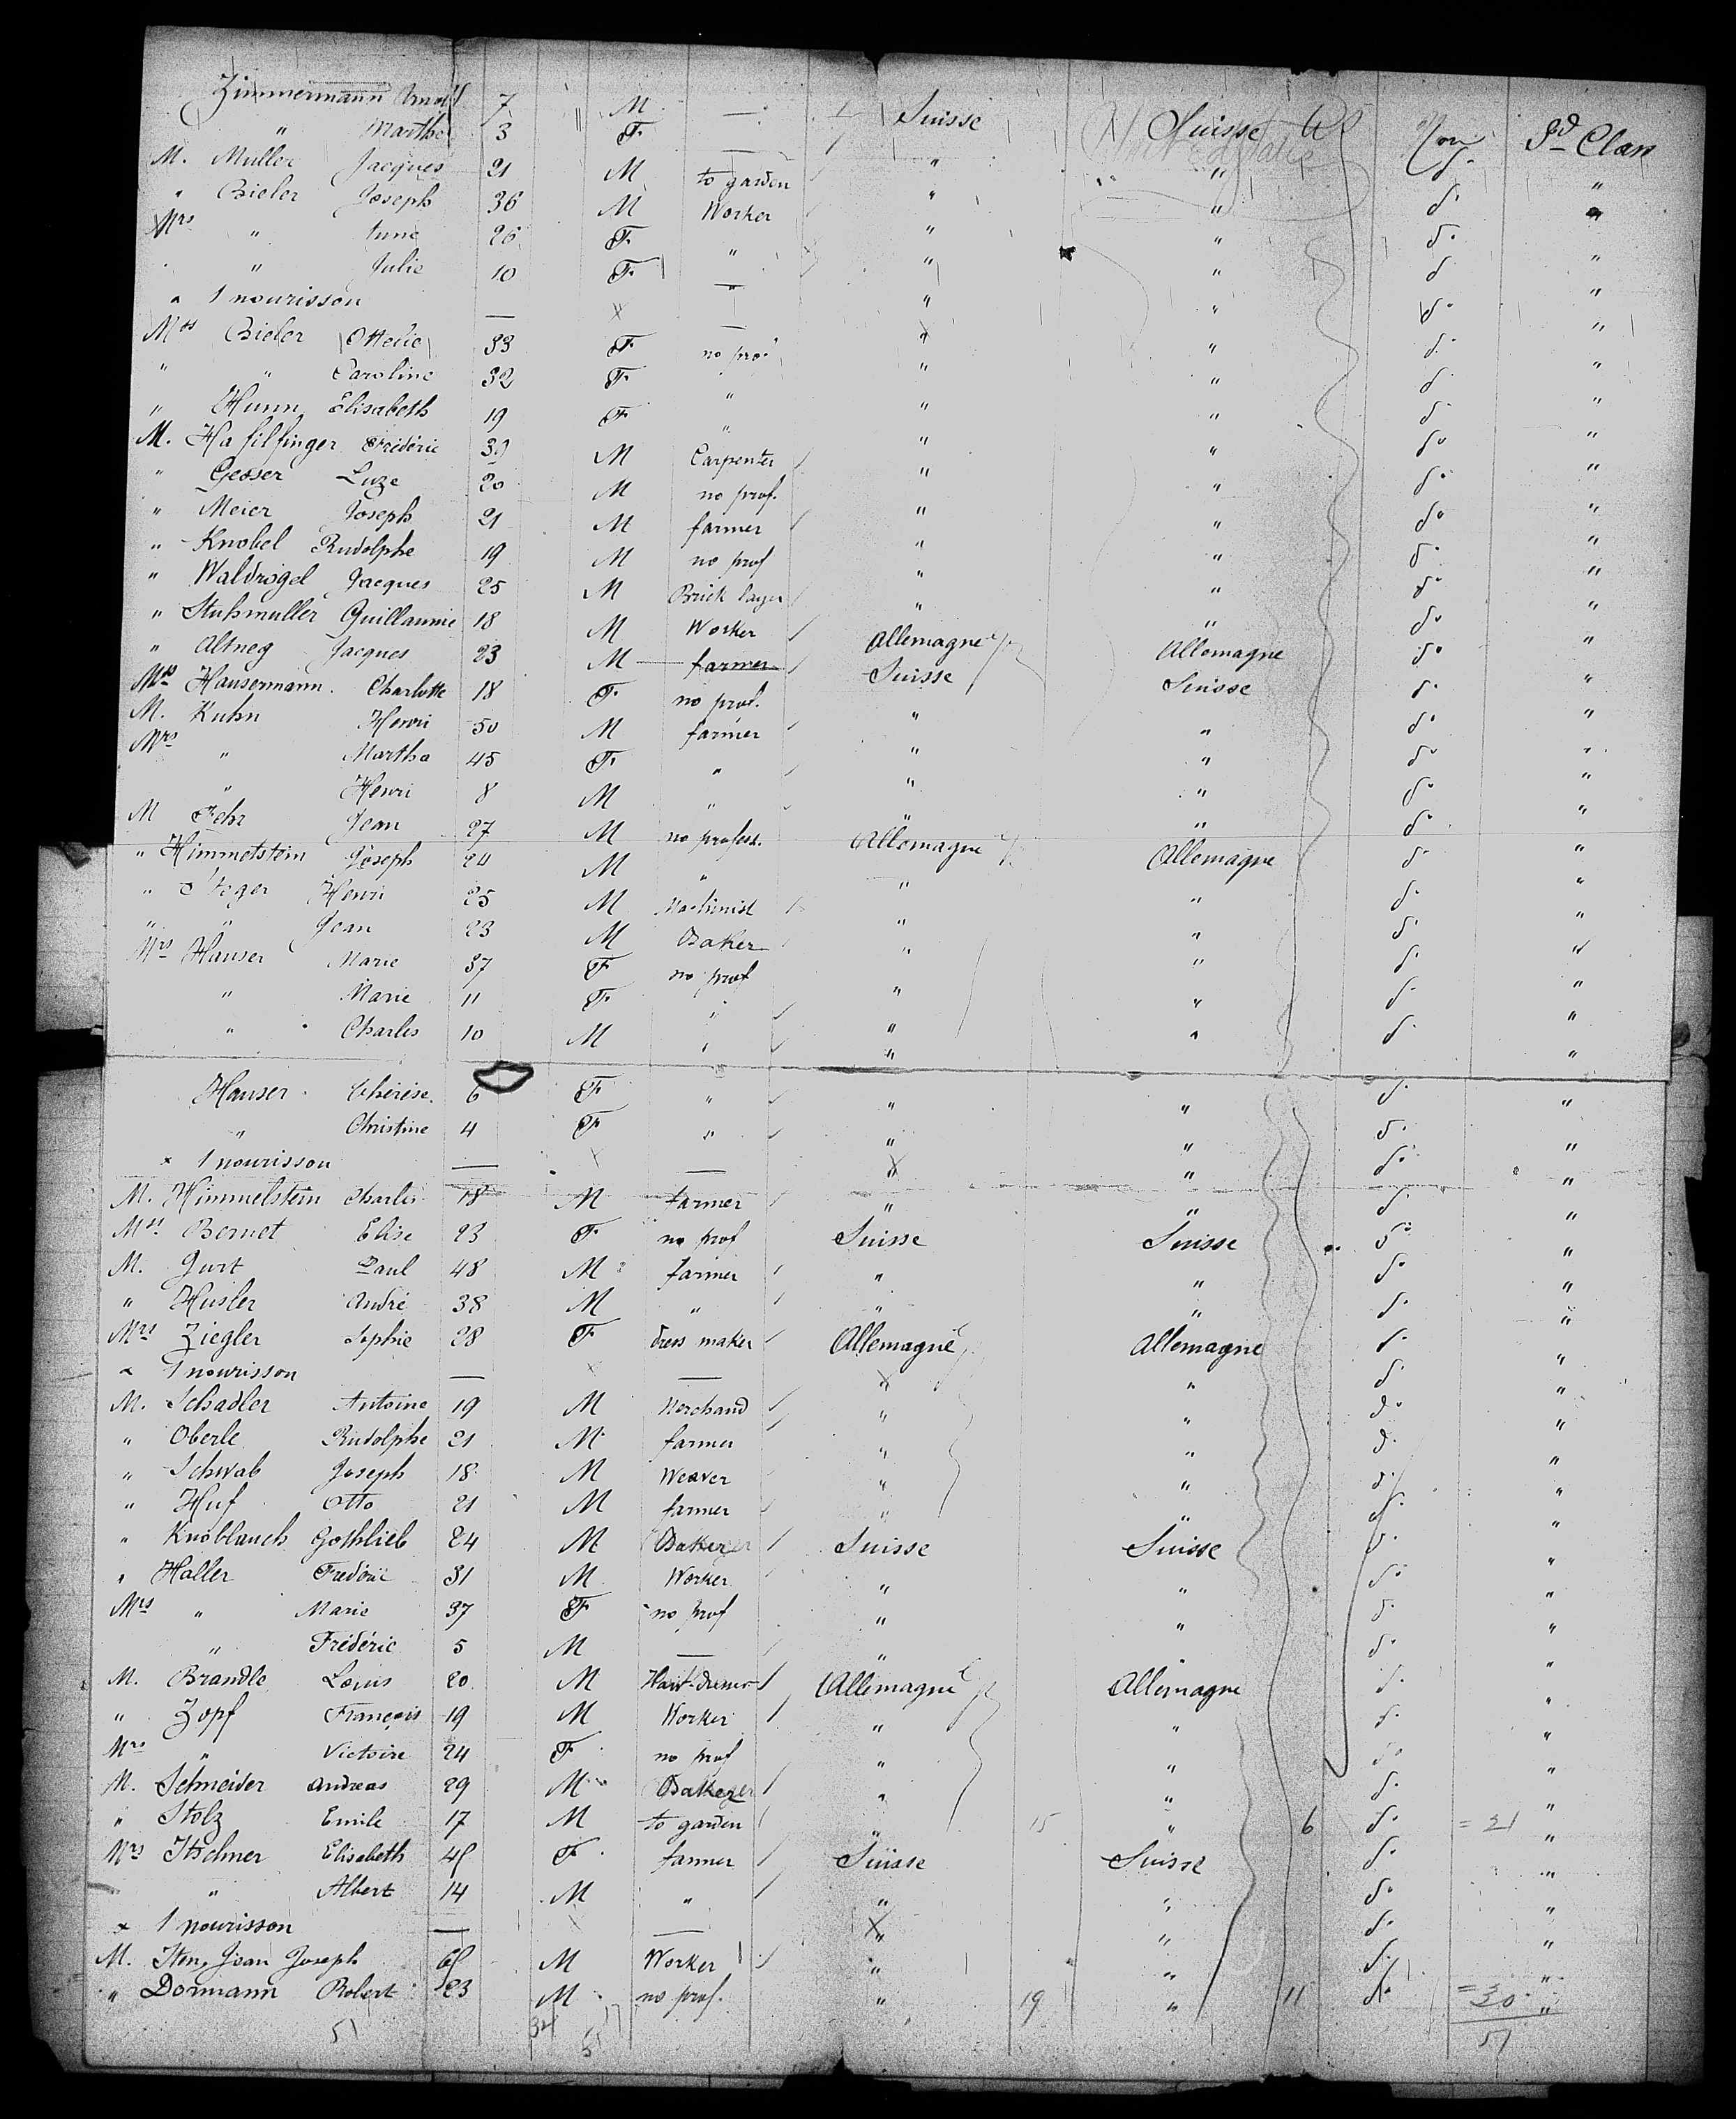 Zimmermann Arnold 7 M — Suisse Suisse 2d Class
" Marthe 3 F — " " d° "
M. Muller Jacques 21 M to garden " " d° "
" Bieler Joseph 36 M Worker " " d° "
Mrs " Anne 26 F " " " d° "
" Julie 10 F " " " d° "
× 1 nourisson — × — " " d° "
Mrs Bieler Ottelie 33 F no prof " " d° "
" " Caroline 32 F " " " d° "
" Hunn Elisabeth 19 F " " " d° "
M. Hafilfinger Frédéric 39 M Carpenter " " d° "
" Geser Luze 20 M no prof. " " d° "
" Meier Joseph 21 M farmer " " d° "
" Knobel Rudolphe 19 M no prof " " d° "
" Waldvogel Jacques 25 M Brick layer " " d° "
" Stuhmuller Guillaume 18 M Worker Allemagne Allemagne d° "
" Altneg Jacques 23 M farmer Suisse Suisse d° "
Mrs Hausermann Charlotte 18 F no prof. " " d° "
M. Kuhn Henri 50 M farmer " " d° "
Mrs " Martha 45 F " " " d° "
" Henri 8 M " " " d° "
M Fehr Jean 27 M no profess. Allemagne Allemagne d° "
" Himmelstein Joseph 24 M " " " d° "
" Henri 25 M Machinist " " d° "
" " Jean 23 M Baker " " d° "
Mrs Hauser Marie 37 F no prof " " d° "
" Marie 11 F " " " d° "
" Charles 10 M " " " d° "
Hauser Thérèse 6 F " " " d° "
" Christine 4 F " " " d° "
× 1 nourisson — × — " " d° "
M. Himmelstein Charles 18 M farmer " " d° "
Mrs Bernet Elise 23 F no prof Suisse Suisse d° "
M. Gurt Paul 48 M farmer " " d° "
" Husler André 38 M " " " d° "
Mrs Ziegler Sophie 28 F dress maker Allemagne Allemagne d° "
× 1 nourisson — × — × " d° "
M. Schadler Antoine 19 M Merchand " " d° "
" Oberle Rudolphe 21 M farmer " " d° "
" Schwab Joseph 18 M Weaver " " d° "
" Huf Otto 21 M farmer " " d° "
" Knoblauch Gothlieb 24 M Baker Suisse Suisse d° "
" Haller Frédéric 31 M Worker " " d° "
Mrs " Marie 37 F no prof " " d° "
" Frédéric 5 M — " " d° "
M. Brandle Louis 20 M Hair-dresser Allemagne Allemagne d° "
" Zopf François 19 M Worker " " d° "
Mrs " Victoire 24 F no prof " " d° "
M. Schneider Andreas 29 M Baker " " d° "
" Stolz Emile 17 M to garden " 15 " 6 d° = 21 "
Mrs Itschner Elisabeth 45 F farmer Suisse Suisse d° "
" Albert 14 M " " " d° "
× 1 nourisson — × — × " d° "
M. Iten, Jean Joseph 65 M Worker " " d° "
" Dormann Robert 23 M no prof. " 19 " 11 d° = 30 "
51 34 17 51